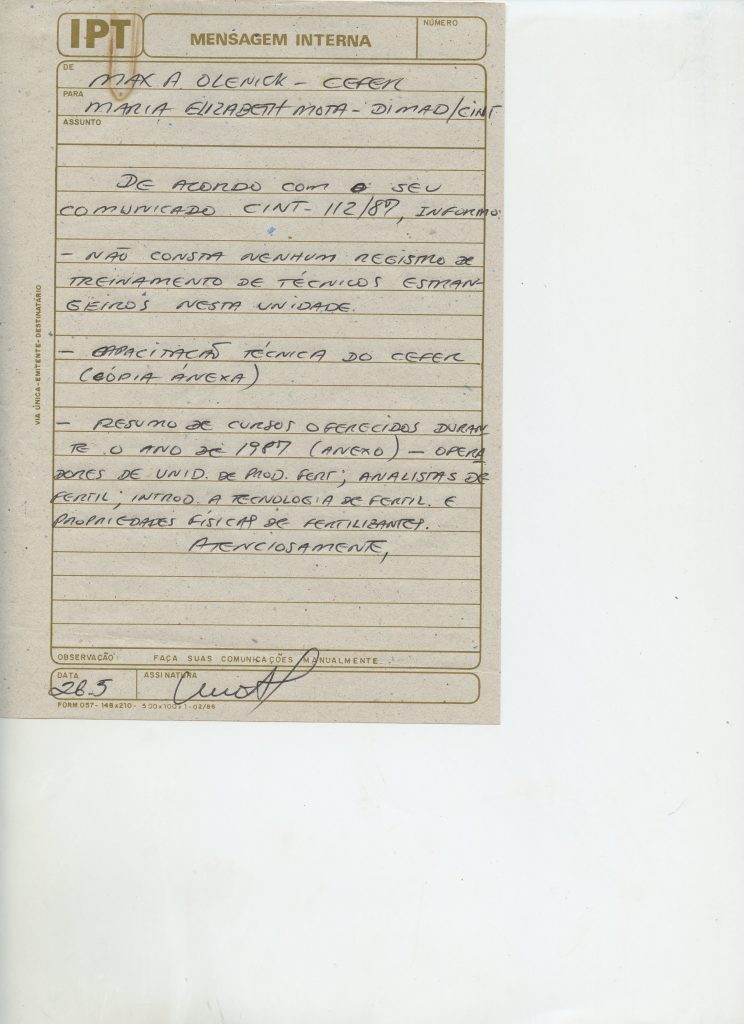 IPT
MENSAGEM INTERNA
NÚMERO
DE
MAX A OLENICK - CEFER
PARA
MARIA ELIZABETH MOTA - DIMAD/CINT
ASSUNTO
DE ACORDO COM O SEU
COMUNICADO CINT-112/87, INFORMO:
- NÃO CONSTA NENHUM REGISTRO DE
TREINAMENTO DE TÉCNICOS ESTRAN-
GEIROS NESTA UNIDADE.
- CAPACITAÇÃO TÉCNICA DO CEFER
(CÓPIA ANEXA)
- RESUMO DE CURSOS OFERECIDOS DURAN
TE O ANO DE 1987 (ANEXO) - OPERA
DORES DE UNID. DE PROD. FERT; ANALISTAS DE
FERTIL; INTROD. A TECNOLOGIA DE FERTIL. E
PROPRIEDADES FÍSICAS DE FERTILIZANTES.
ATENCIOSAMENTE,
OBSERVAÇÃO: FAÇA SUAS COMUNICAÇÕES MANUALMENTE
DATA
26.5
ASSINATURA
FORM 057 - 148x210 - 500x100x1 - 02/86
VIA ÚNICA - EMITENTE - DESTINATÁRIO